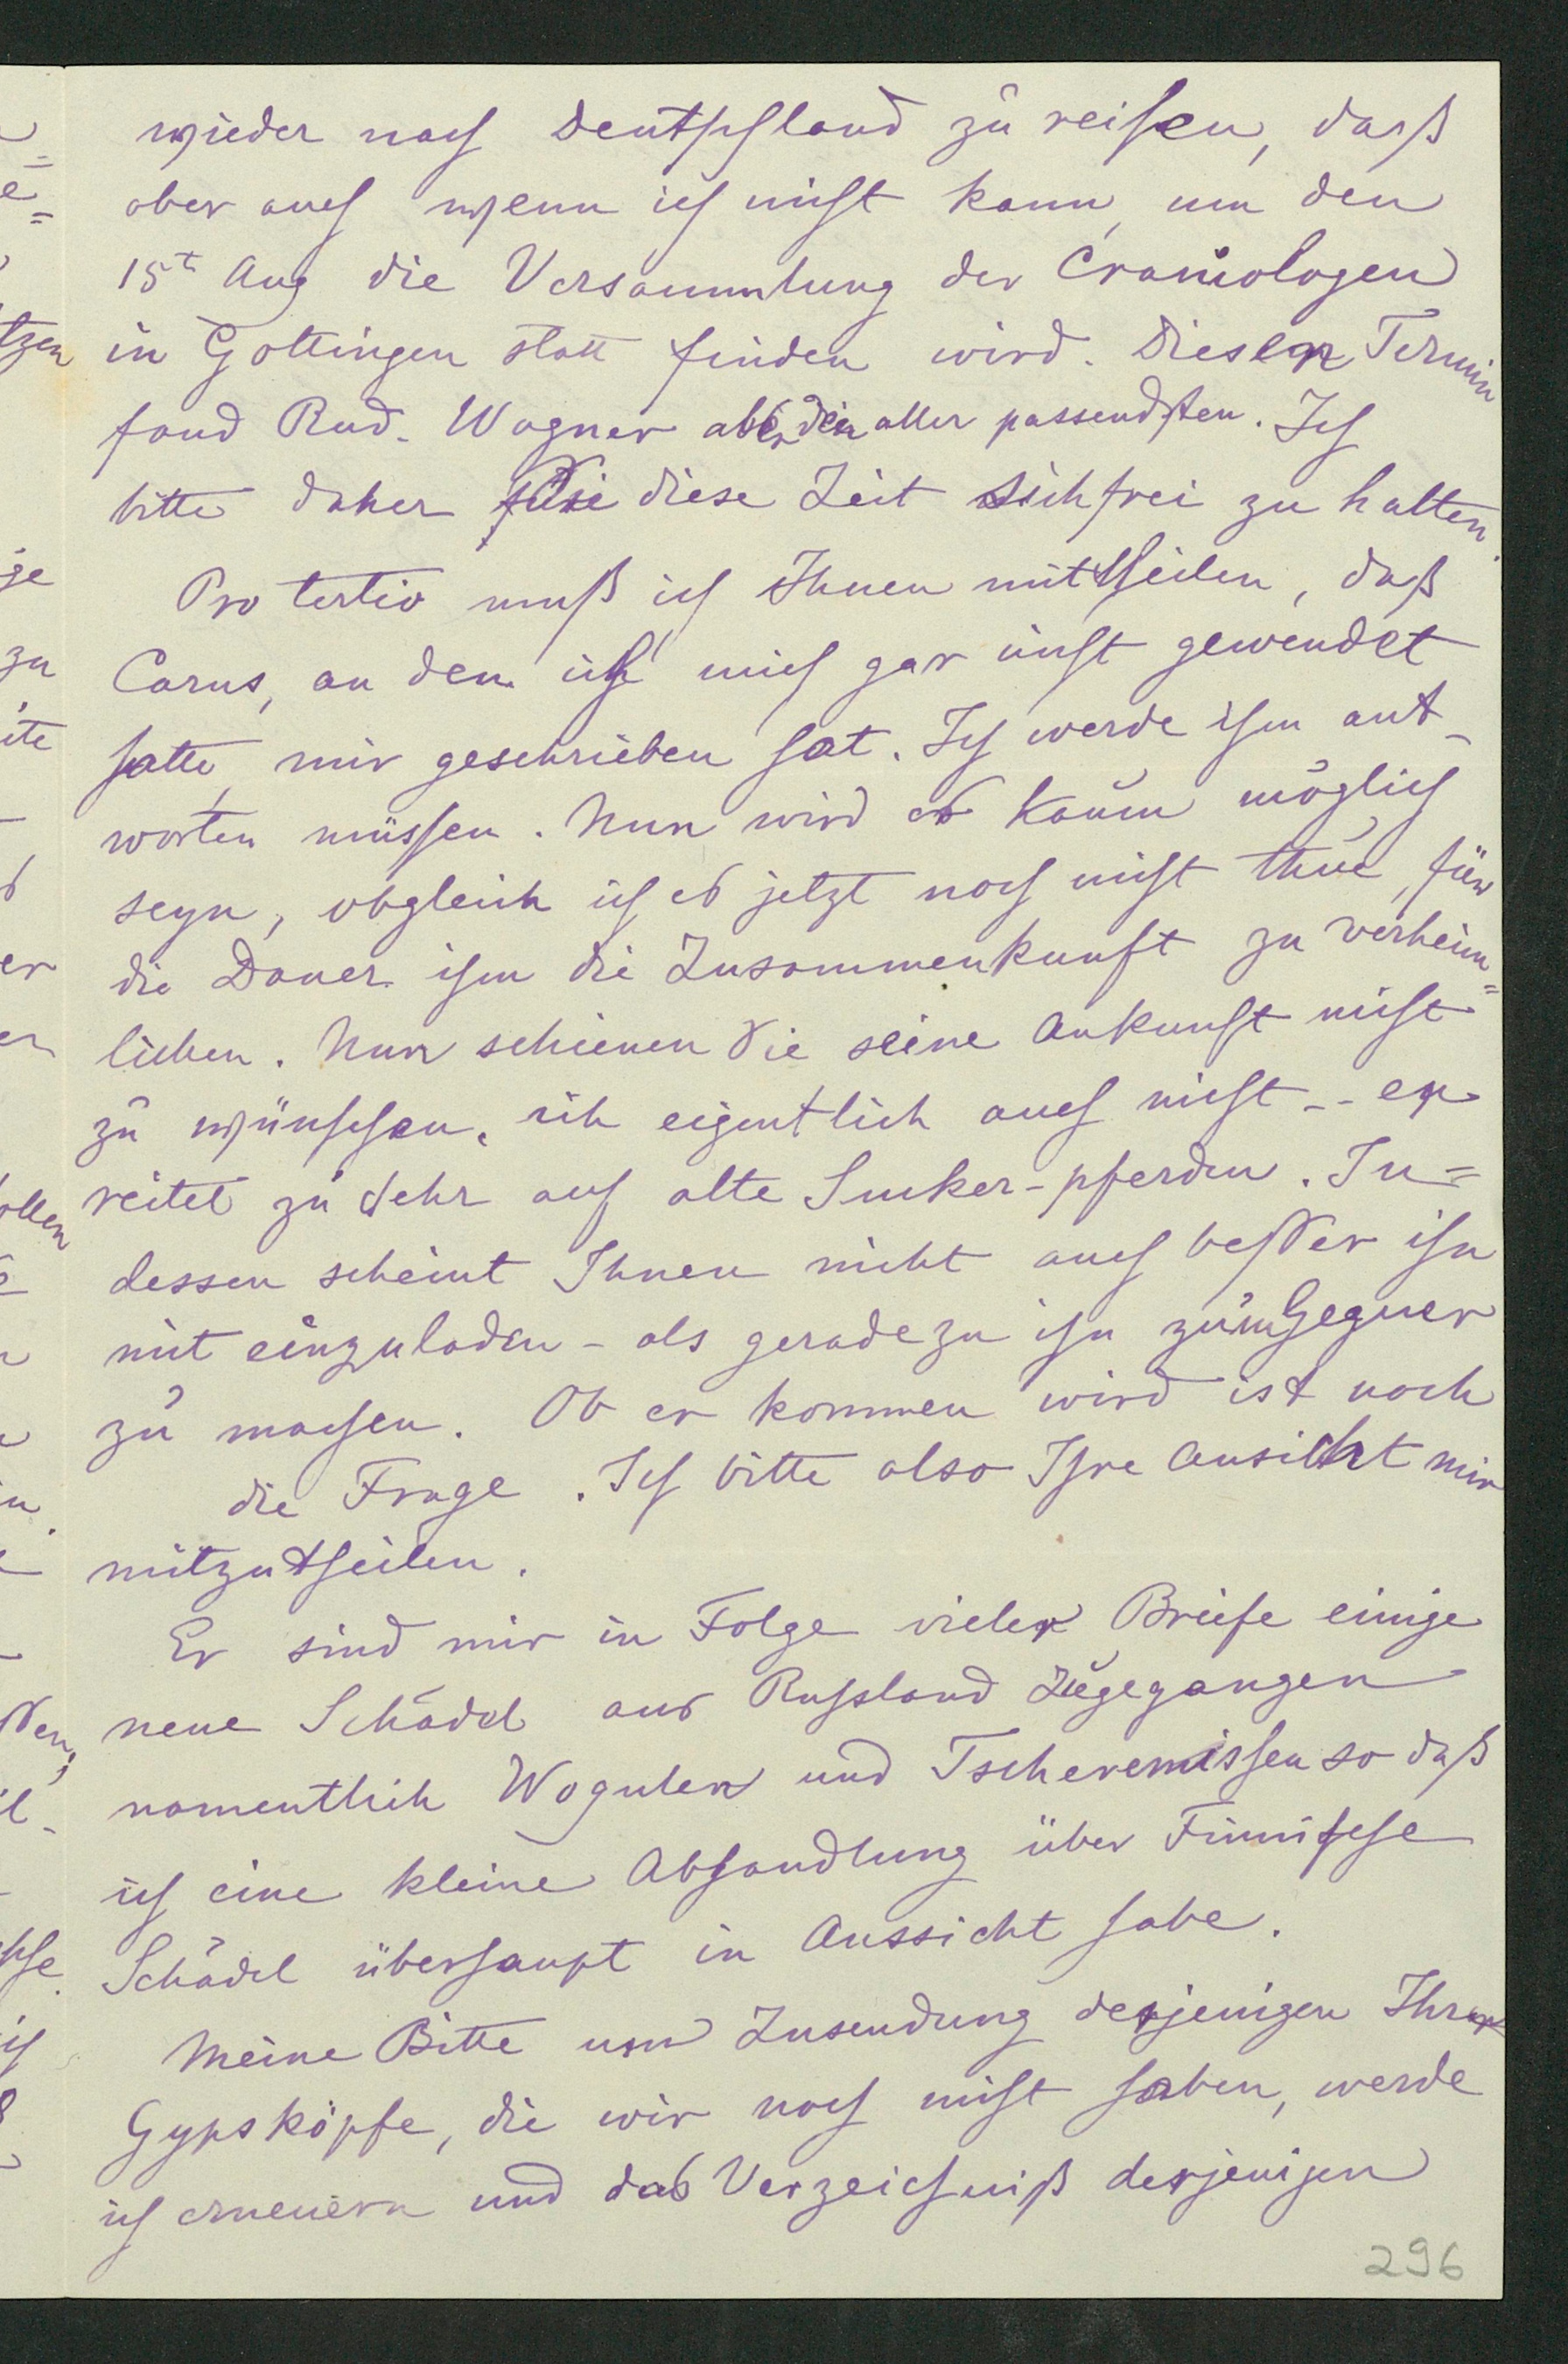 wieder nach Deutschland zu reisen, daß
aber auch wenn ich nicht kann, um den
15t Aug die Versammlung der Craniologen
in Göttingen statt finden wird. Diesen Termin
fand Rud. Wagner aber den aller passendsten. Ich
bitte daher Sie diese Zeit sich frei zu halten.
Pro tertio muß ich Ihnen mittheilen, daß
Carus, an den ich mich gar nicht gewendet
hatte, mir geschrieben hat. Ich werde ihm ant-
worten müssen. Nun wird es kaum möglich
seyn, obgleich ich es jetzt noch nicht thue, für
die Dauer ihm die Zusammenkunft zu verheim=
lichen. Nun schienen Sie seine Ankunft nicht
zu wünschen, ich eigentlich auch nicht -- er
reitet zu sehr auf alte -pferden. In=
dessen scheint Ihnen nicht auch besser ihn
mit einzuladen - als geradezu ihn zum Gegner
zu machen. Ob er kommen wird ist noch
die Frage. Ich bitte also Ihre Ansicht mir
mitzutheilen.
Er sind mir in Folge vieler Briefe einige
neue Schädel aus Russland zugegangen
namentlich Wogulen und Tscheremissen so daß
ich eine kleine Abhandlung über Finnische
Schädel überhaupt in Aussicht habe.
Meine Bitte um Zusendung derjenigen Ihrer
Gypsköpfe, die wir noch nicht haben, werde
ich erneuern und das Verzeichniß derjenigen
296